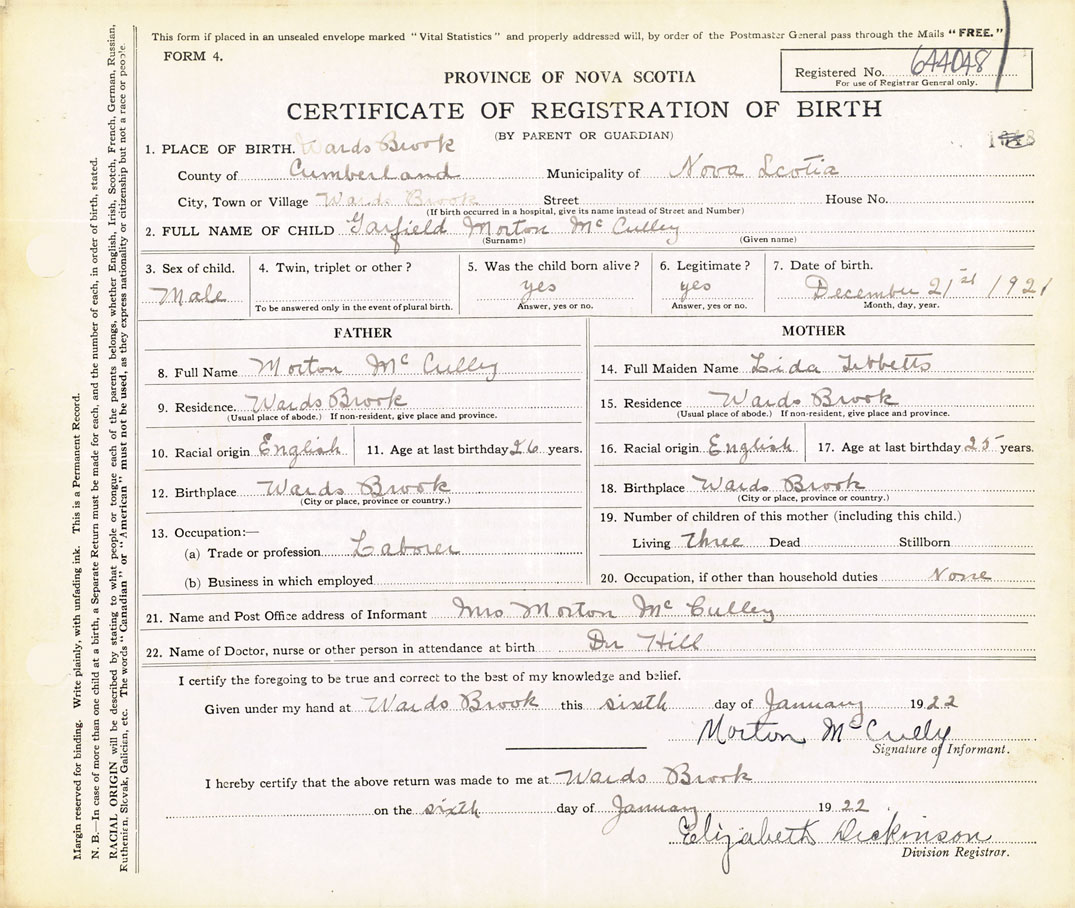 This form if placed in an unsealed envelope marked "Vital Statistics" and properly addressed will, by order of the Postmaster General pass through the Mails "FREE."
FORM 4.
Registered No. 644048
For use of Registrar General only.
PROVINCE OF NOVA SCOTIA
CERTIFICATE OF REGISTRATION OF BIRTH
(BY PARENT OR GUARDIAN)
1. PLACE OF BIRTH. Wards Brook
County of Cumberland Municipality of Nova Scotia
City, Town or Village Wards Brook Street House No.
(If birth occurred in a hospital, give its name instead of Street and Number)
2. FULL NAME OF CHILD Garfield Morton Mc Culley
(Surname) (Given name)
3. Sex of child. Male
4. Twin, triplet or other?
To be answered only in the event of plural birth.
5. Was the child born alive? yes
Answer, yes or no.
6. Legitimate? yes
Answer, yes or no.
7. Date of birth. December 21st 1921
Month, day, year.
FATHER
8. Full Name Morton Mc Culley
9. Residence. Wards Brook
(Usual place of abode.) If non-resident, give place and province.
10. Racial origin English 11. Age at last birthday 26 years.
12. Birthplace Wards Brook
(City or place, province or country.)
13. Occupation:—
(a) Trade or profession Laborer
(b) Business in which employed
MOTHER
14. Full Maiden Name Lida Tibbetts
15. Residence Wards Brook
(Usual place of abode.) If non-resident, give place and province.
16. Racial origin English 17. Age at last birthday 25 years.
18. Birthplace Wards Brook
(City or place, province or country.)
19. Number of children of this mother (including this child.)
Living Three Dead Stillborn
20. Occupation, if other than household duties None
21. Name and Post Office address of Informant Mrs Morton Mc Culley
22. Name of Doctor, nurse or other person in attendance at birth Dr Hill
I certify the foregoing to be true and correct to the best of my knowledge and belief.
Given under my hand at Wards Brook this sixth day of January 1922
Morton McCully
Signature of Informant.
I hereby certify that the above return was made to me at Wards Brook
on the sixth day of January 1922
Elizabeth Dickinson
Division Registrar.
Margin reserved for binding. Write plainly, with unfading ink. This is a Permanent Record.
N. B.—In case of more than one child at a birth, a Separate Return must be made for each, and the number of each, in order of birth, stated.
RACIAL ORIGIN will be described by stating to what people or tongue each of the parents belongs, whether English, Irish, Scotch, French, German, Russian,
Ruthenien, Slovak, Galician, etc. The words "Canadian" or "American" must not be used, as they express nationality or citizenship but not a race or people.